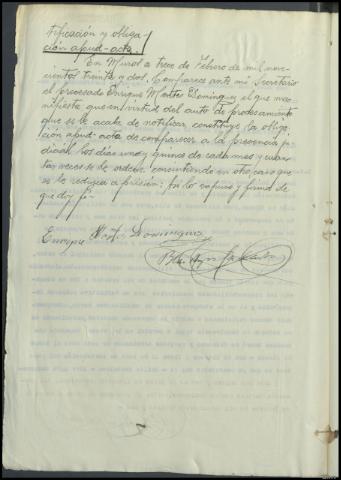 tificación y obliga
ción apud-acta.
En Mural a trece de Febrero de mil nove-
cientos treinta y dos. Comparece ante mi Secretario
el procesado Enrique Martes Dominguez, el que ma-
nifiesta que en virtud del auto de procesamiento
que se le acaba de notificar, constituye la obliga-
ción apud-acta de comparecer a la presencia ju-
dicial los dias uno y quince de cada mes y cuan-
tas veces se le ordene, consintiendo en otro caso que
se le reduzca a prisión: Asi lo expuso y firma de
que doy fé-
Enrique Dominguez